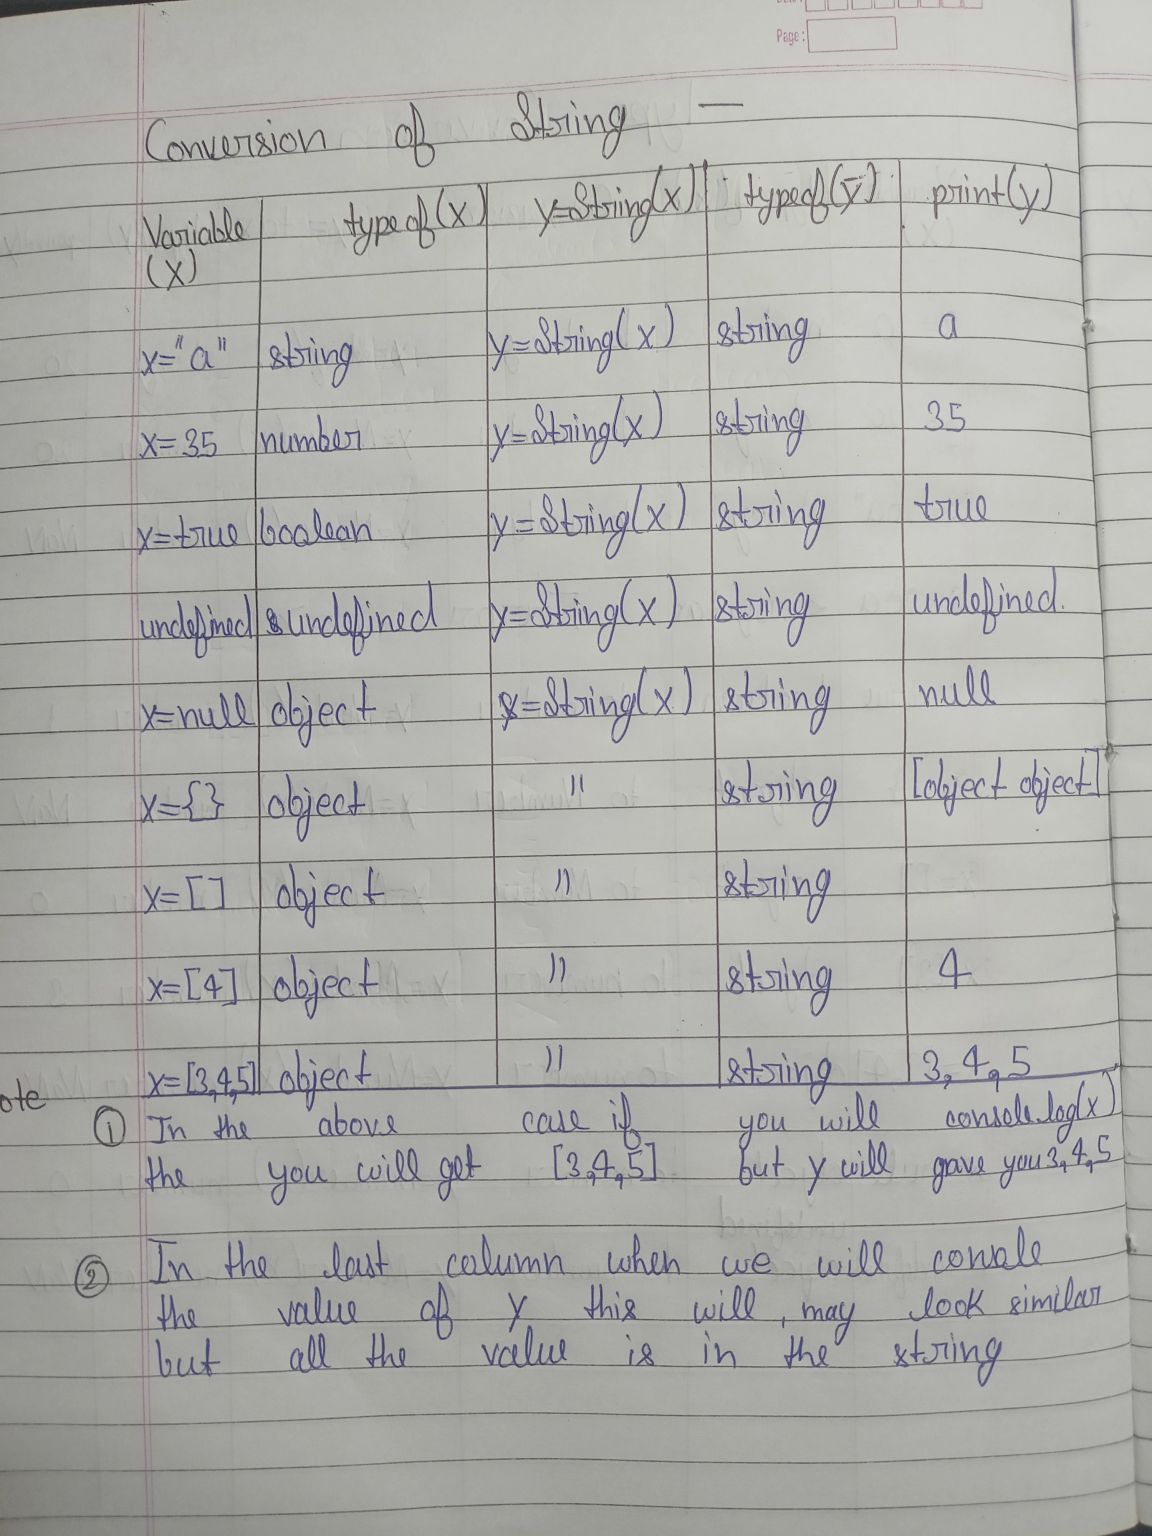 Page:
Conversion of String —
Variable (X) typeof(X) y=String(X) typeof(y) print(y)
x="a" string y=String(x) string a
x=35 number y=String(x) string 35
x=true boolean y=String(x) string true
undefined undefined y=String(x) string undefined.
x=null object y=String(x) string null
x={} object " string [object object]
x=[] object " string
x=[4] object " string 4
x=[3,4,5] object " string 3,4,5
ote
① In the above case if you will console.log(x)
the you will get [3,4,5] but y will gave you 3,4,5
② In the last column when we will console
the value of y this will, may look similar
but all the value is in the string